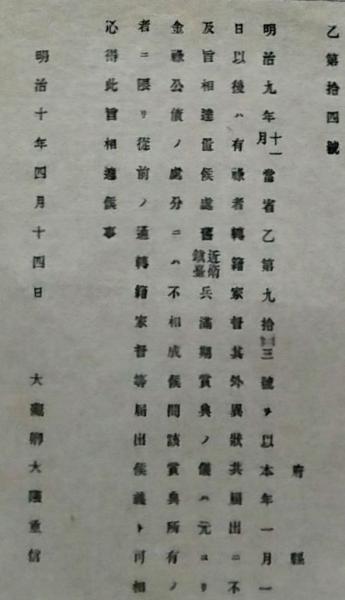 乙第拾四號
府縣
明治九年十一月當省乙第九拾三號ヲ以本年一月一
日以後ハ有祿者轉籍家督其外異狀共屆出ニ不
及旨相達置候處舊近衛鎮臺兵滿期賞典ノ儀ハ元ヨリ
金祿公債ノ處分ニハ不相成候間該賞典所有ノ
者ニ限リ從前ノ通轉籍家督等屆出候義ト可相
心得此旨相達候事
明治十年四月十四日 大藏卿大隈重信